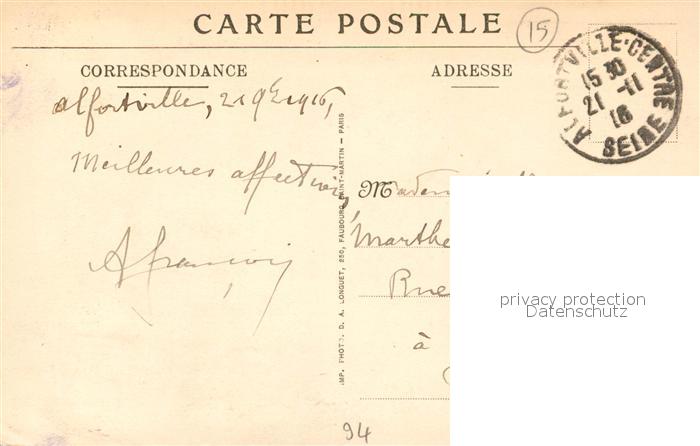 CARTE POSTALE
15
CORRESPONDANCE
ADRESSE
ALFORTVILLE-CENTRE
15 30
21 -11
16
SEINE
Alfortville, 21 9bre 1916,
Meilleures affections
A François
IMP. PHOTO. D. A. LONGUET, 250, FAUBOURG SAINT-MARTIN - PARIS
Marthe
Rue
à
privacy protection
Datenschutz
94